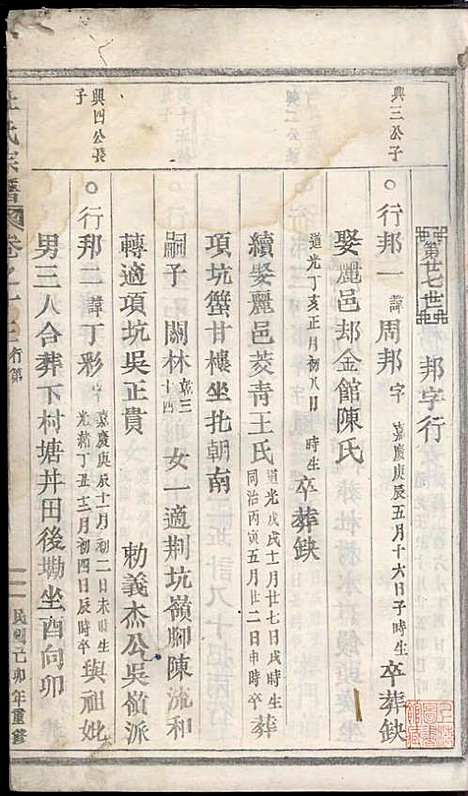 第廿七世 邦字行
興三公子
○行邦一 諱周邦 字 嘉慶庚辰五月十六日子時生 卒葬缺
娶麗邑邞金館陳氏
道光丁亥正月初八日 時生 卒葬缺
續娶麗邑菱青王氏 道光戊戌十一月廿七日戌時生 同治丙寅五月廿二日申時卒 葬
項坑蟹甘樓坐北朝南
嗣子 關林 章三 十四 女一適荆坑嶺腳陳流和
轉適項坑吳正貴 勅義杰公吳嶺派
興四公長子
○行邦二 諱丁彩 字 嘉慶庚辰十一月初二日未時生 光緒丁丑十二月初四日辰時卒 與祖妣
男三人合葬下村塘丼田後坳坐酉向卯
氏宗譜 卷之 行第
民國己卯年重修